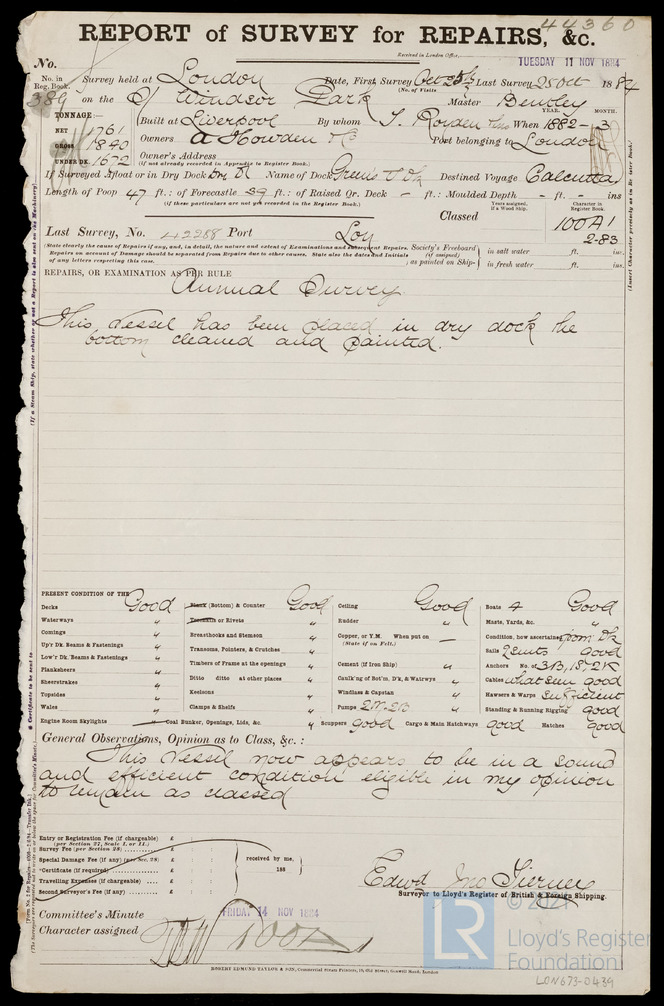 44360
REPORT of SURVEY for REPAIRS, &c.
Received in London Office,
TUESDAY 11 NOV 1884
No.
No. in Reg. Book. Survey held at London Date, First Survey Oct 25th Last Survey 25 Oct 1884
(No. of Visits )
389 on the S/ Windsor Park Master Bentley
TONNAGE:— Built at Liverpool By whom When 1882-3
YEAR. MONTH.
NET 1761
GROSS 1840 Owners A Howden & Co Port belonging to London
UNDER DK. 1672 Owner's Address
(if not already recorded in Appendix to Register Book.)
If Surveyed Afloat or in Dry Dock Dry Dk Name of Dock Greens Destined Voyage Calcutta
Length of Poop 47 ft.: of Forecastle 39 ft.: of Raised Qr. Deck - ft.: Moulded Depth - ft. - ins
(if these particulars are not yet recorded in the Register Book.)
Years assigned, if a Wood Ship. Character in Register Book.
Classed 100A1
2-83
Last Survey, No. 42288 Port Lon
(State clearly the cause of Repairs if any, and, in detail, the nature and extent of Examinations and subsequent Repairs.
Repairs on account of Damage should be separated from Repairs due to other causes. State also the dates and initials
of any letters respecting this case.
Society's Freeboard (if assigned) as painted on Ship- in salt water ft. ins.
in fresh water ft. ins.
REPAIRS, OR EXAMINATION AS PER RULE
Annual Survey
This Vessel has been placed in dry dock the
bottom cleaned and painted.
PRESENT CONDITION OF THE
Decks Good Plank (Bottom) & Counter Good Ceiling Good Boats 4 Good
Waterways " Treenails or Rivets " Rudder " Masts, Yards, &c. "
Comings " Breasthooks and Stemson " Copper, or Y.M. When put on — Condition, how ascertained from Dk
(State if on Felt.)
Up'r Dk. Beams & Fastenings " Transoms, Pointers, & Crutches " Sails 2 suits good
Low'r Dk. Beams & Fastenings " Timbers of Frame at the openings " Cement (if from Ship) " Anchors No. of 3B, 1S, 2K
Planksheers " Ditto ditto at other places " Caulk'ng of Bot'm, D'k, & Watrwys " Cables what seen good
Sheerstrakes " Keelsons " Windlass & Capstan " Hawsers & Warps Sufficient
Topsides " Clamps & Shelfs " Pumps Standing & Running Rigging good
Wales "
Engine Room Skylights — Coal Bunker, Openings, Lids, &c. " Scuppers good Cargo & Main Hatchways good Hatches good
General Observations, Opinion as to Class, &c. :
This Vessel now appears to be in a sound
and efficient condition eligible in my opinion
to remain as classed
Entry or Registration Fee (if chargeable) £
(per Section 27, Scale I. or II.)
Survey Fee (per Section 28) £
Special Damage Fee (if any) (per Sec. 28) £ received by me,
*Certificate (if required) £ 188
Travelling Expenses (if chargeable) £
Second Surveyor's Fee (if any) £
Edwd Jno Tierney
Surveyor to Lloyd's Register of British & Foreign Shipping.
Committee's Minute FRIDAY 14 NOV 1884
Character assigned 100A1
ROBERT EDMUND TAYLOR & SON, Commercial Steam Printers, 19, Old Street, Goswell Road, London
© 2021
LR
Lloyd's Register
Foundation
LON673-0439